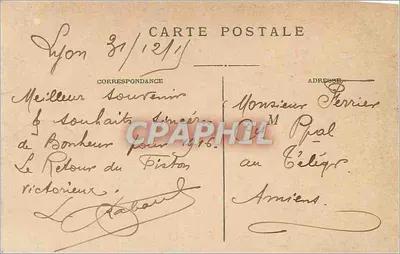 CARTE POSTALE
Lyon 31/12/15
CORRESPONDANCE
ADRESSE
Meilleur souvenir
& souhaits sincères
de Bonheur pour 1916.
Le Retour du Piston
victorieux.
Monsieur Ferrier
M
Ppal
au Télégr.
Amiens.
CPAPHIL.com